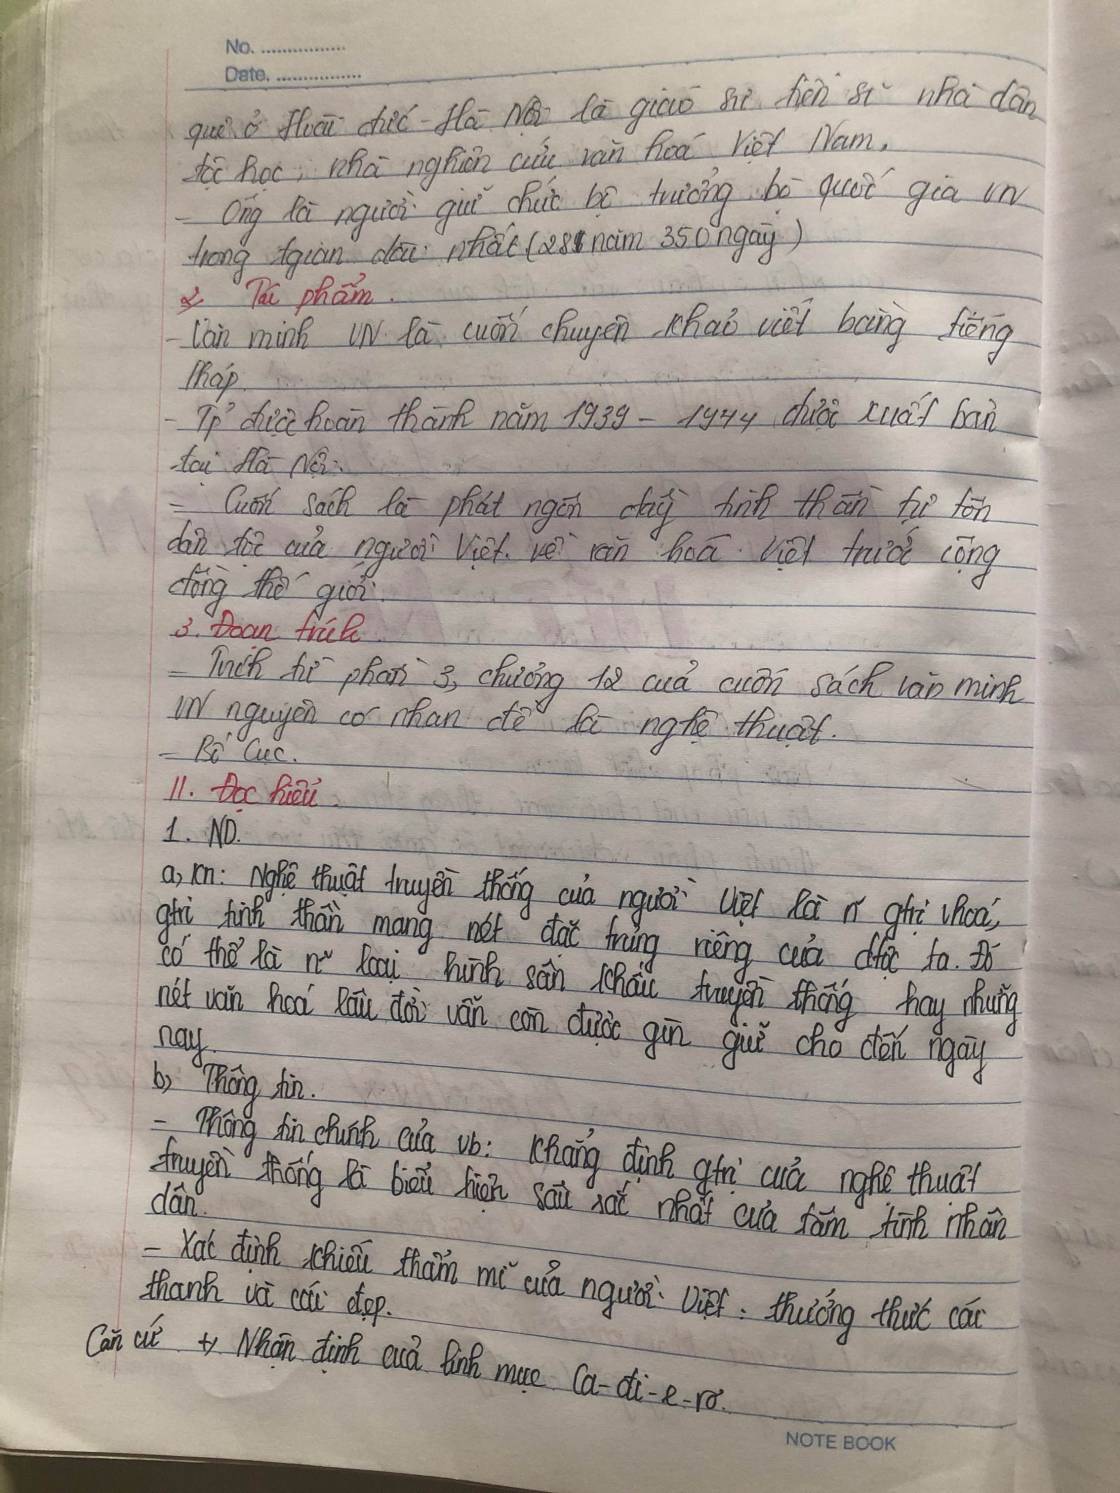 No. ................
Date. ................
quê ở Hoài đức - Hà Nội là giáo sư tiến sĩ nhà dân
tộc học, nhà nghiên cứu văn hoá Việt Nam.
- Ông là người giữ chức bộ trưởng bộ quốc gia VN
trong tgian dài nhất (28 năm 350 ngày)
2, Tác phẩm.
- Văn minh VN là cuốn chuyên khảo viết bằng tiếng
Pháp
- Tp' được hoàn thành năm 1939 - 1944 được xuất bản
tại Hà Nội.
- Cuốn sách là phát ngôn đầy tinh thần tự tôn
dân tộc của người Việt. về văn hoá Việt trước cộng
đồng thế giới.
3. Đoạn trích
- Trích từ phần 3, chương 12 của cuốn sách văn minh
VN nguyên có nhan đề là nghệ thuật.
- Bố Cục.
II. Đọc hiểu.
1. ND.
a, Kn: Nghệ thuật truyền thống của người Việt là n~ gtrị vhoá,
gtrị tinh thần mang nét đặc trưng riêng của dtộc ta. Đó
có thể là n~ loại hình sân khấu truyền thống hay những
nét văn hoá lâu đời vẫn còn được gìn giữ cho đến ngày
nay.
b, Thông tin.
- Thông tin chính của vb: Khẳng định gtrị của nghệ thuật
truyền thống là biểu hiện sâu sắc nhất của tâm tình nhân
dân.
- Xác định khiếu thẩm mĩ của người Việt: thưởng thức cái
thanh và cái đẹp.
Căn cứ + Nhận định của linh mục Ca-đi-e-rơ.
NOTE BOOK